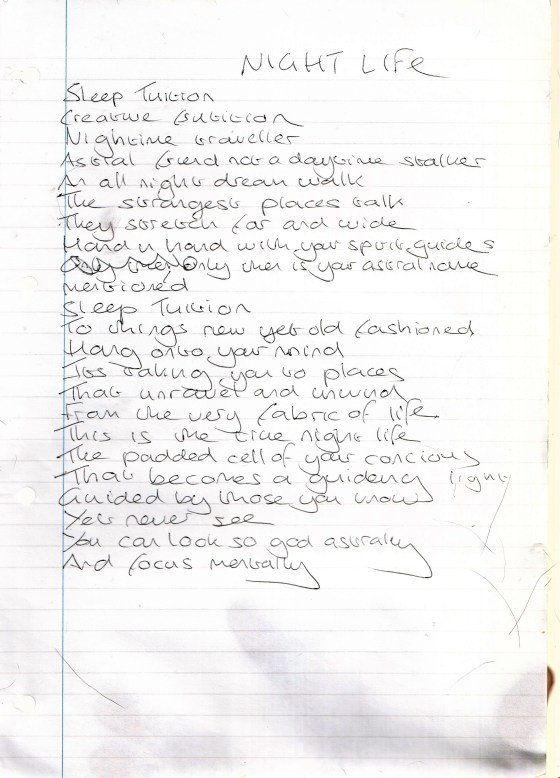 NIGHT LIFE
Sleep Tuition
Creative tutition
Nightime traveller
Astral friend not a daytime stalker
An all night dream walk
The strangest places talk
They stretch far and wide
Hand n hand with your spirit guides
only then is your astral name
mentioned
Sleep Tuition
To things new yet old fashioned
Hang onto your mind
Its taking you to places
That unravel and unwind
From the very fabric of life
This is the true night life
The padded cell of your concious
That becomes a guidency light
Guided by those you know
Yet never see
You can look so god astraly
And focus mentally